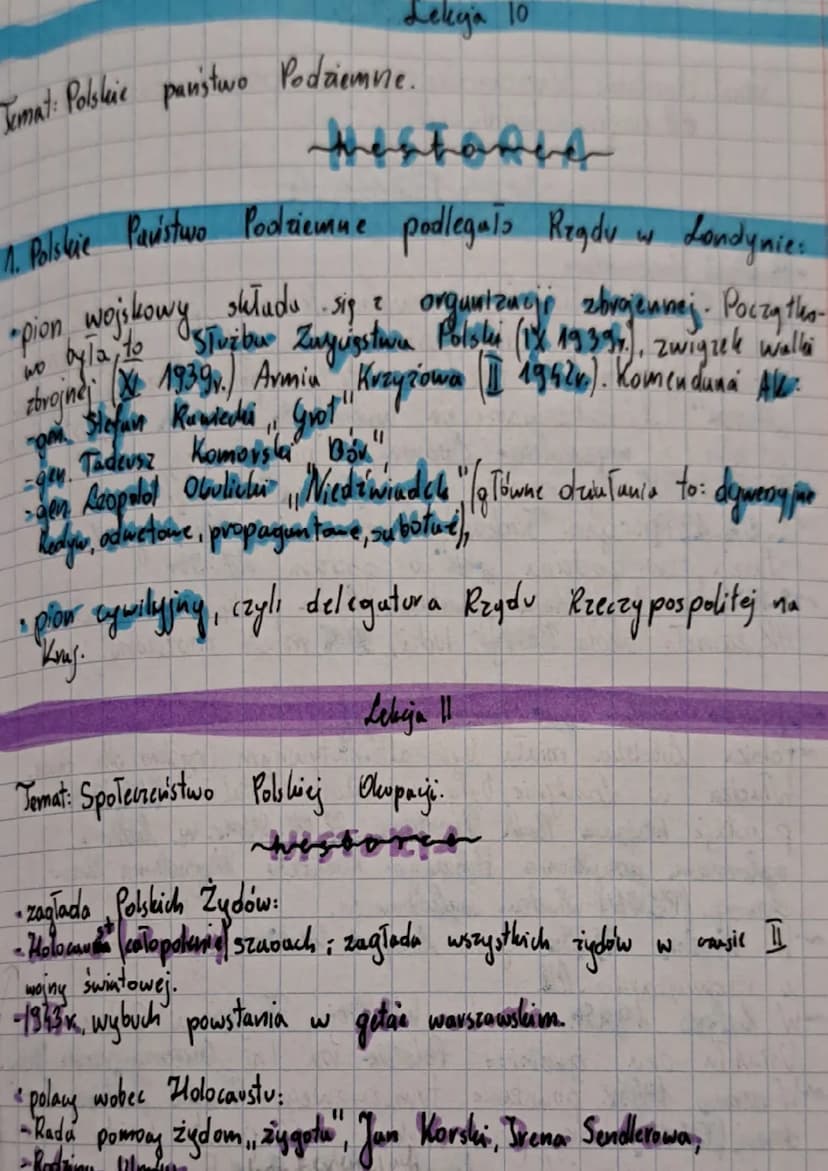 Lekcja 10
Temat: Polskie państwo Podziemne.
HISTORIA
1. Polskie Państwo Podziemne podlegało Rządu w Londynie:
• pion wojskowy składa się z organizacji zbrojennej. Początko-
wo była to Służba Zwycięstwa Polski (IX 1939r.), związek walki
zbrojnej (XI 1939r.) Armia Krzyżowa (II 1942r.). Komendana AK:
- gen. Stefan Rawiecki „Grot"
- gen. Tadeusz Komorski „Bór"
- gen. Leopold Okulicki „Niedźwiadek" (główne działania to: dywersyjne
odwetowe, propagantowe, sabotaż),
• pion cywilyjny, czyli delegatura Rządu Rzeczypospolitej na
Kraj.
Lekcja 11
Temat: Społeczeństwo Polskiej Okupacji.
HISTORIA
• zagłada Polskich Żydów:
- Holocaust (całopolenie) szaoach i zagłada wszystkich żydów w czasie II
wojny światowej.
- 1943r. wybuch powstania w getcie warszawskim.
• polacy wobec Holocaustu:
- Rada pomocy żydom „żygota", Jan Korski, Irena Sendlerowa,
- Rodzina